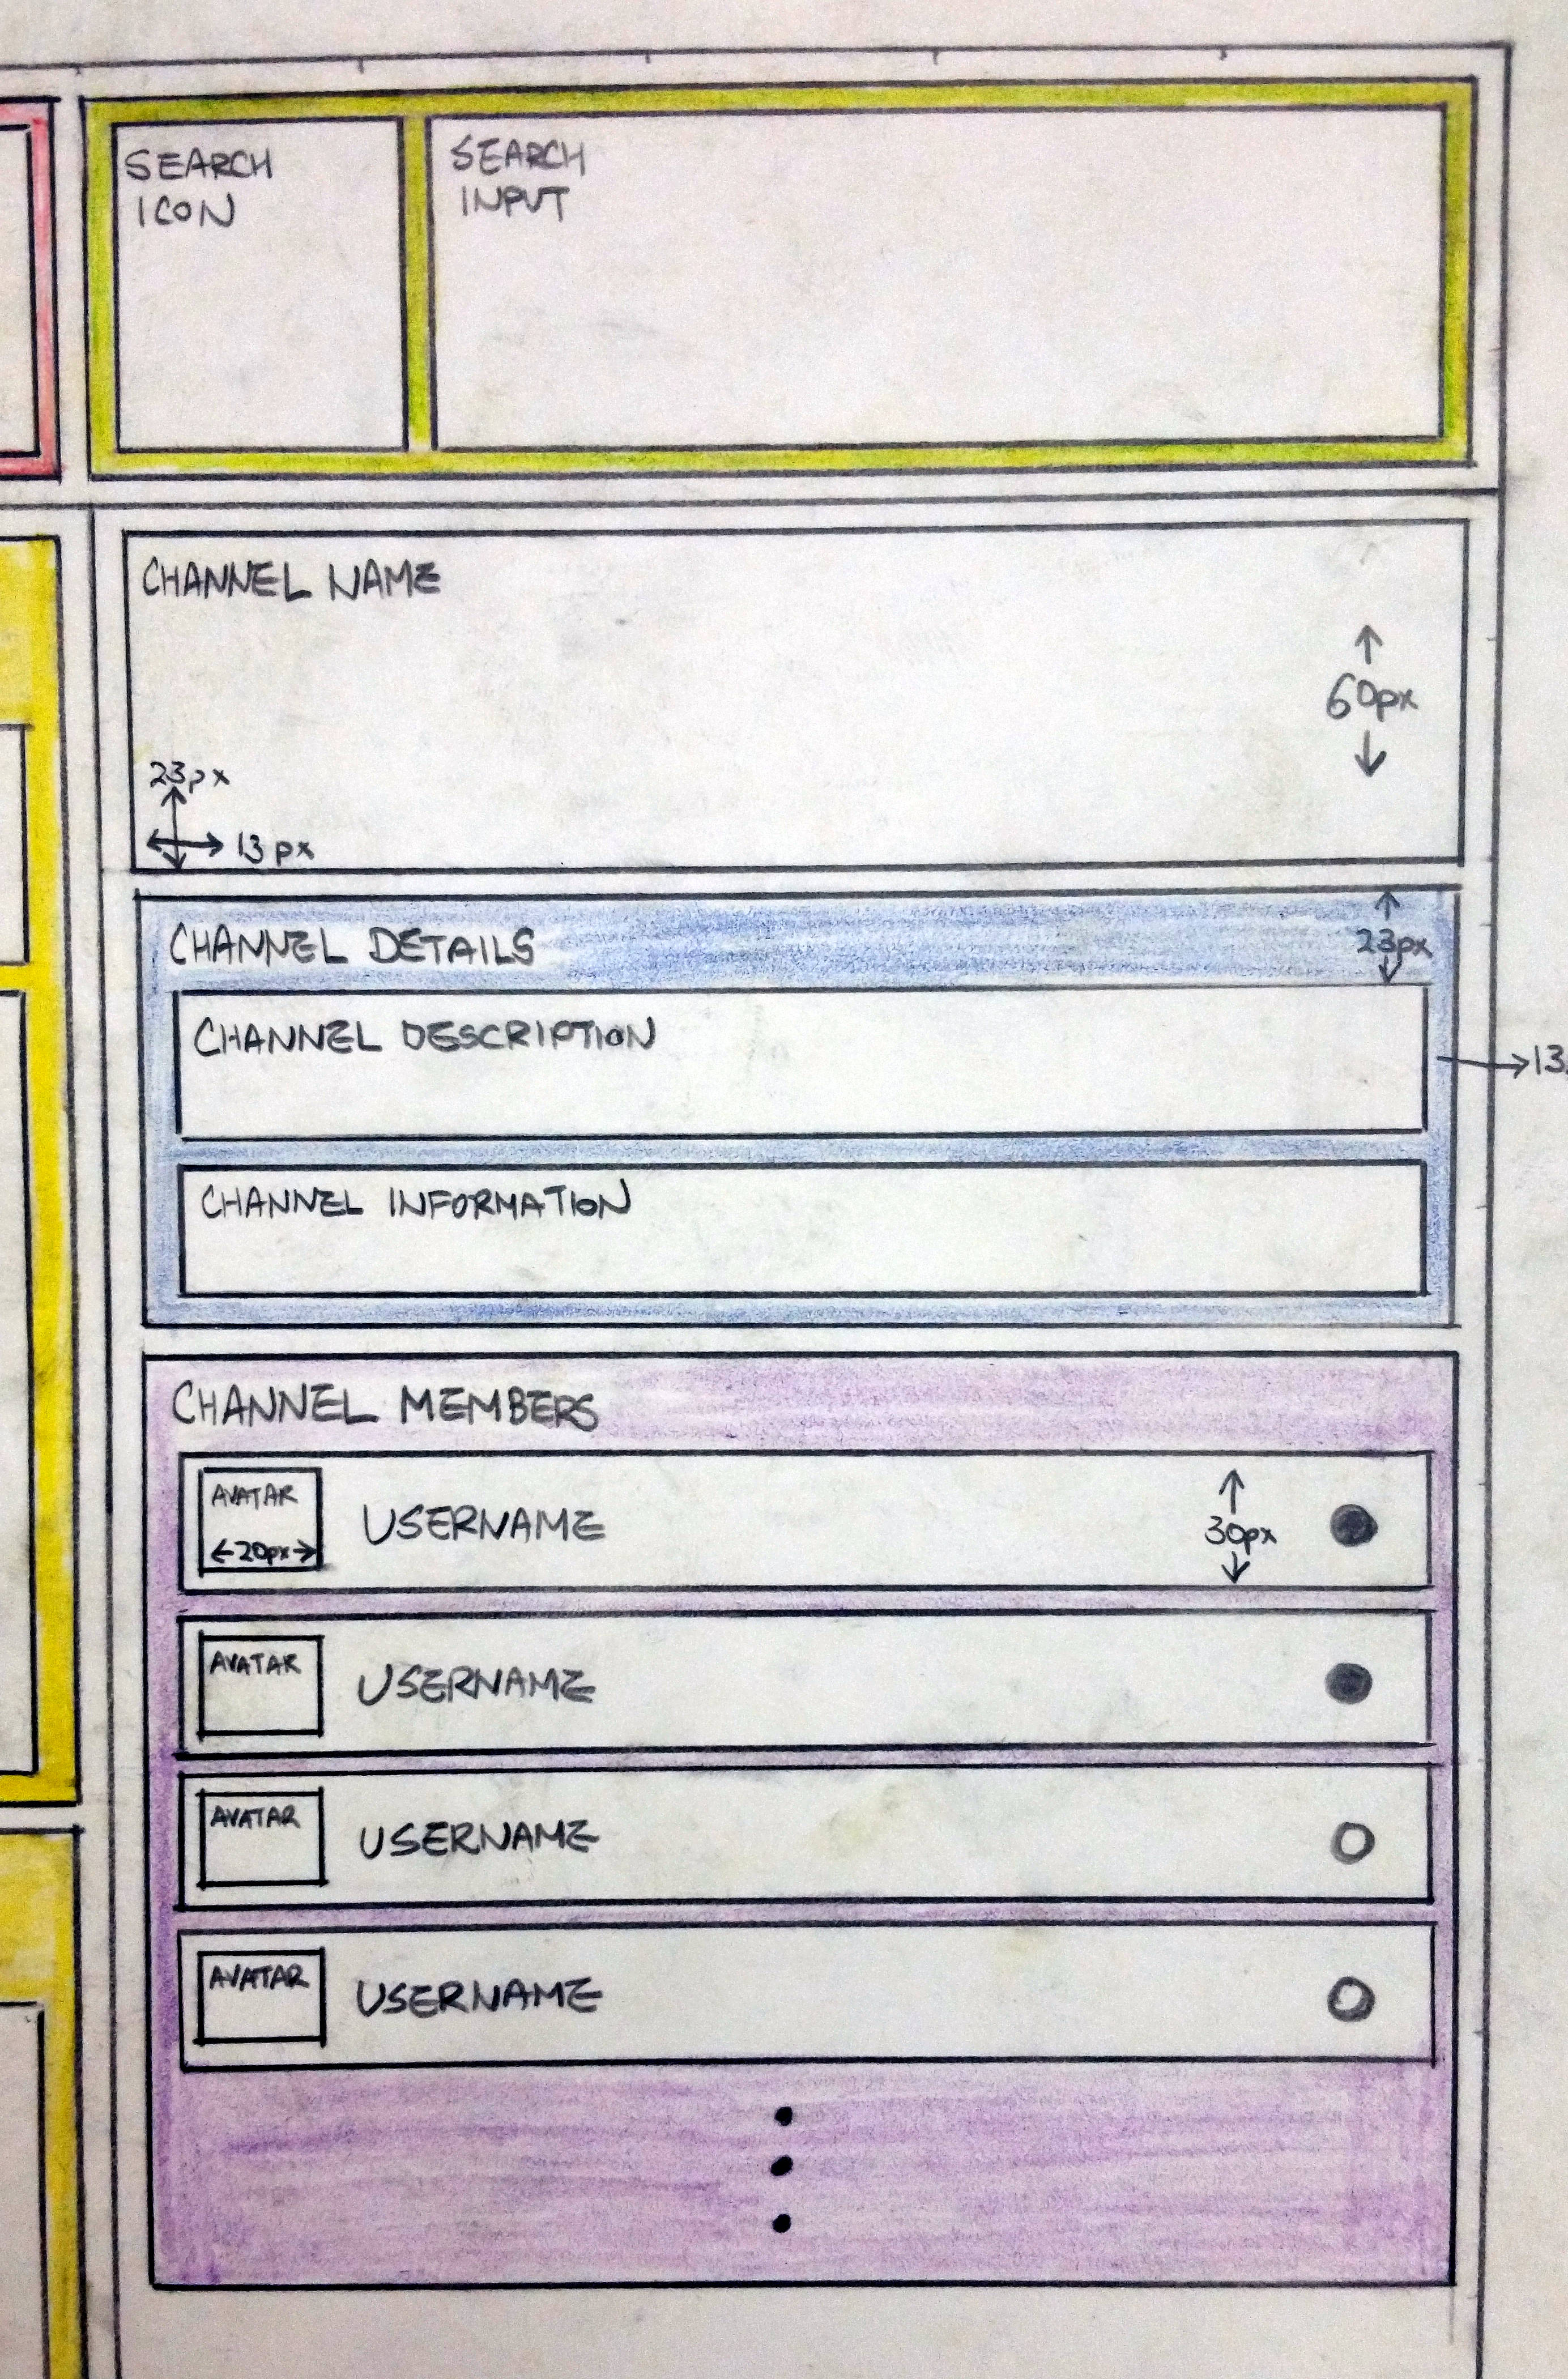 SEARCH
ICON
SEARCH
INPUT
CHANNEL NAME
60px
23px
13px
CHANNEL DETAILS
23px
CHANNEL DESCRIPTION
13
CHANNEL INFORMATION
CHANNEL MEMBERS
AVATAR
20px
USERNAME
30px
AVATAR
USERNAME
AVATAR
USERNAME
AVATAR
USERNAME